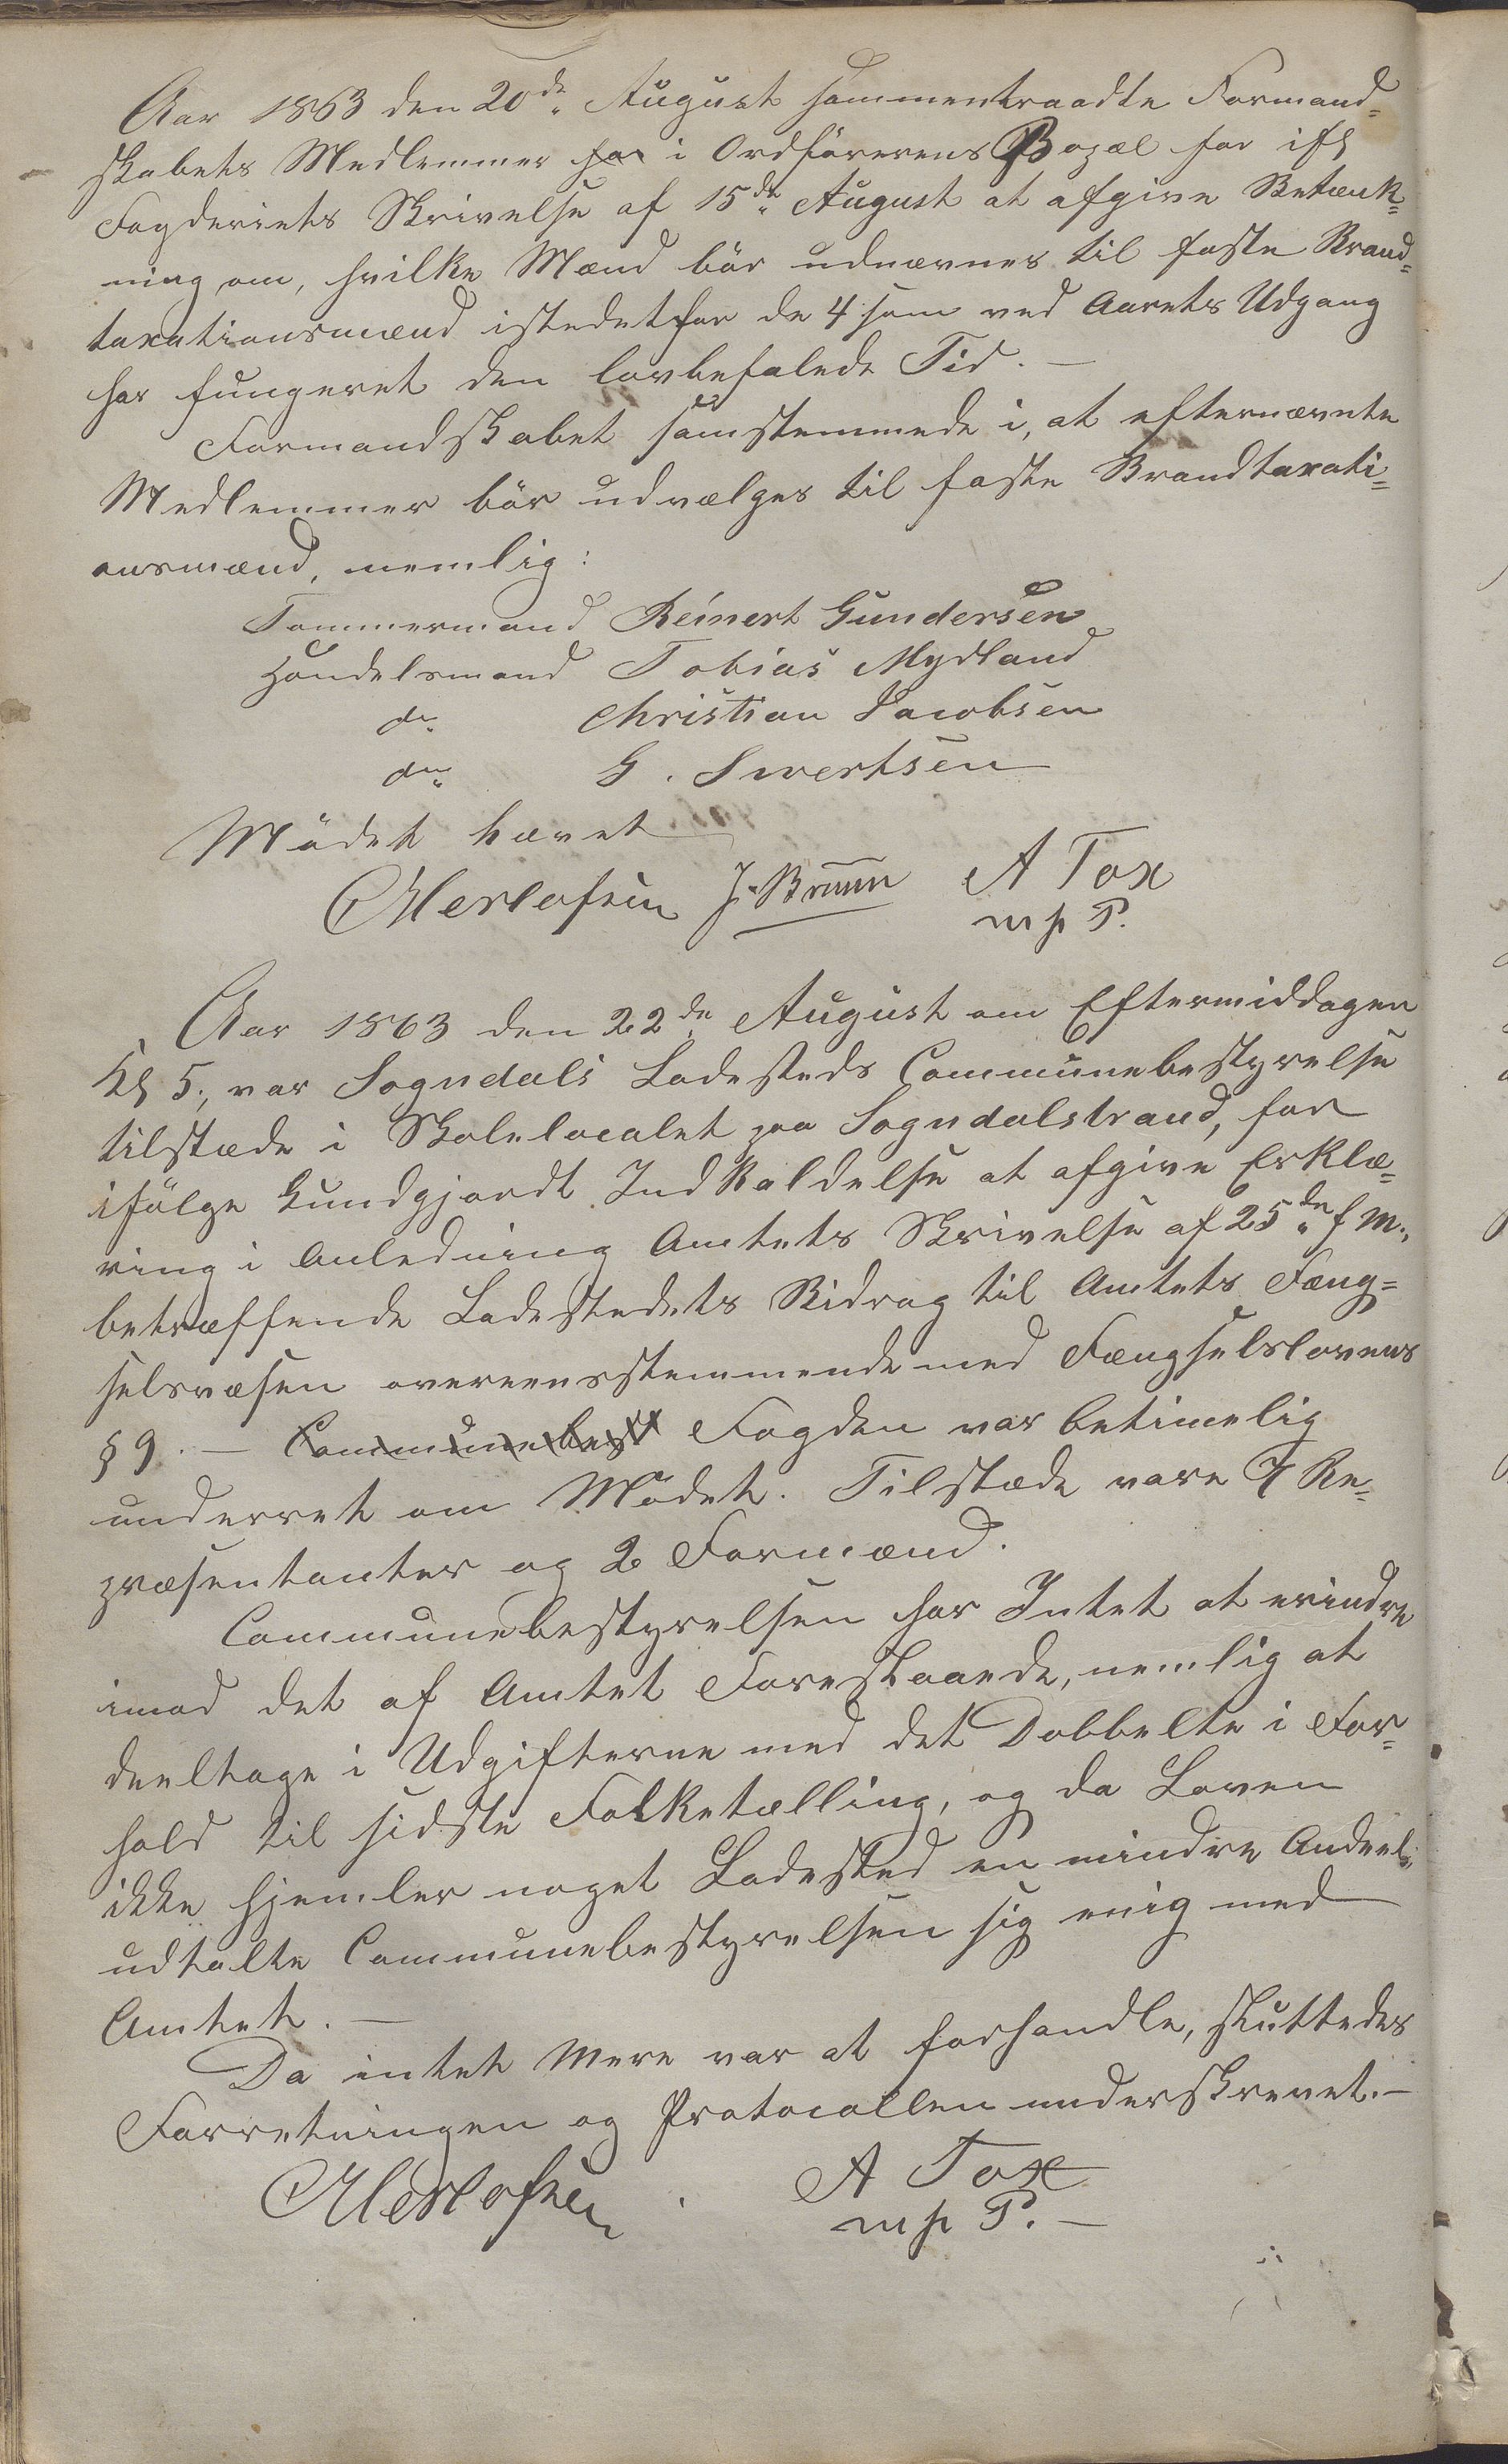 Aar 1863 den 20de August sammentraadte Formand=
skabets Medlemmer for i Ordførerens Bopæl for ifl
Fogderiets Skrivelse af 15de August at afgive Betænk=
ning om, hvilke Mænd bör udnævnes til faste Brand=
taxationsmænd istedetfor de 4 som ved Aarets Udgang
har fungeret den lovbefalede Tid. —
Formandskabet samstemmede i, at efternævnte
Medlemmer bör udvælges til faste Brandtaxati=
onsmænd, nemlig:
Tømmermand Reinert Gundersen
Handelsmand Tobias Mydland
do Christian Jacobsen
do G. Swertsen
Mödet hævet
J. Bruun A Tox
mp P.
Aar 1863 den 22de August om Eftermiddagen
Kl 5., var Sogndals Ladesteds Communebestyrelse
tilstæde i Skolelocalet paa Sogndalstrand, for
ifölge kundgjordt Indkaldelse at afgive Erklæ=
ring i Anledning Amtets Skrivelse af 25de f M.,
betræffende Ladestedets Bidrag til Amtets Fæng=
selsvæsen overeensstemmende med Fængselslovens
§ 9. — Communebest Fogden var betimelig
underret om Mödet. Tilstæde vare 7 Re=
præsentanter og 2 Formænd.
Communebestyrelsen har Intet at erindre
imod det af Amtet Foreslaaede, nemlig at
deeltage i Udgifterne med det Dobbelte i For=
hold til sidste Folketælling, og da Loven
ikke hjemler noget Ladested en mindre Andeel,
udtalte Communebestyrelsen sig enig med
Amtet. —
Da intet Mere var at forhandle, sluttedes
Forretningen og Protocollen underskrevet. —
A Tox
mp P. —